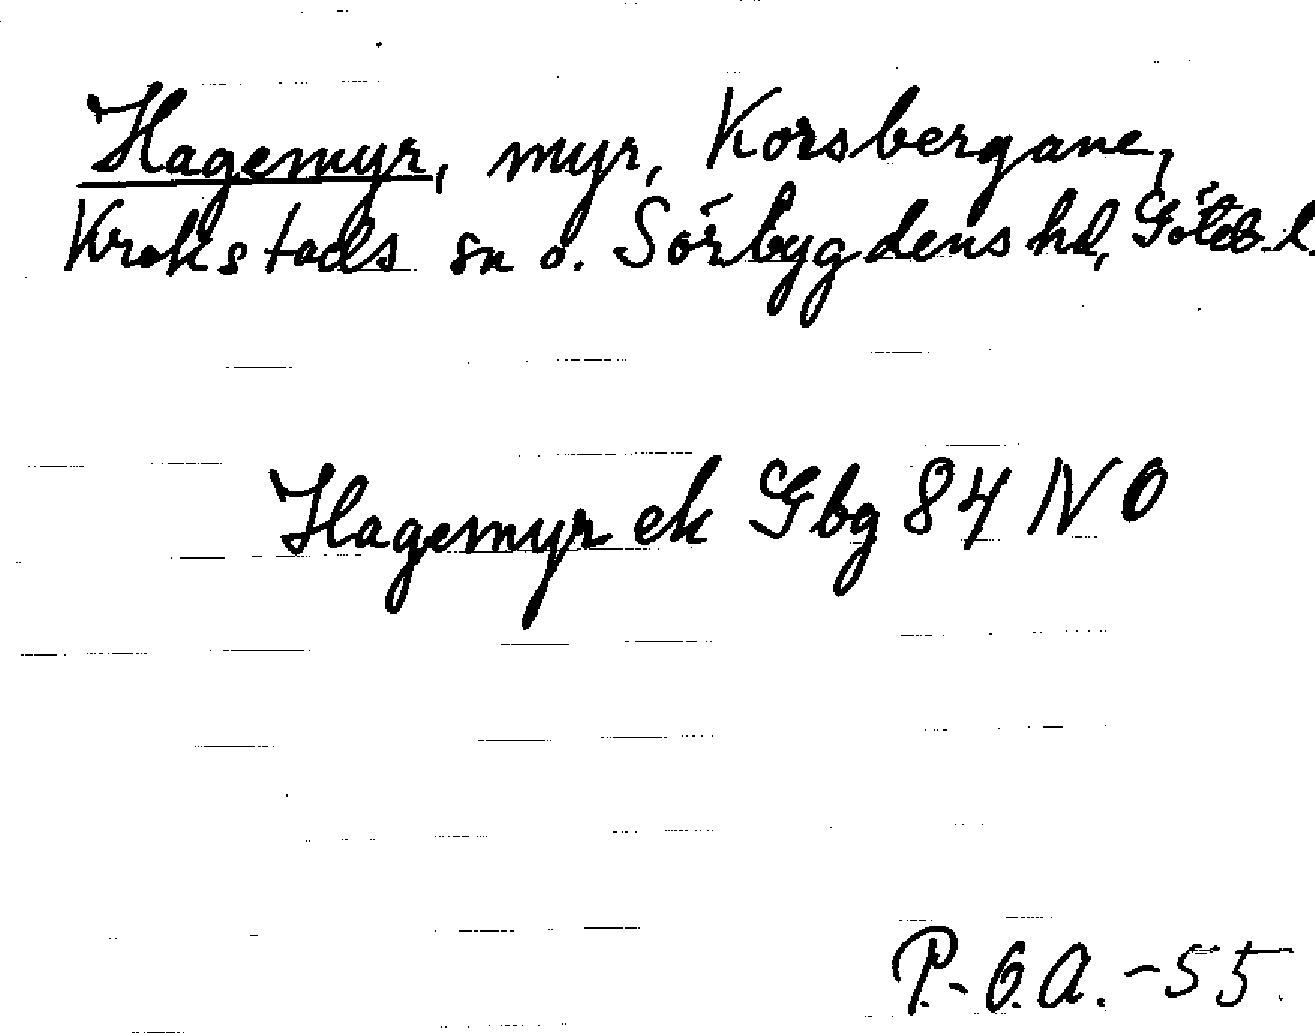 Hagemyr, myr, Korsbergane,
Krokstads sn o. Sörbygdens hd, Göteb. l.
Hagemyr ek Gbg 84 NO
P.-O.A. -55.